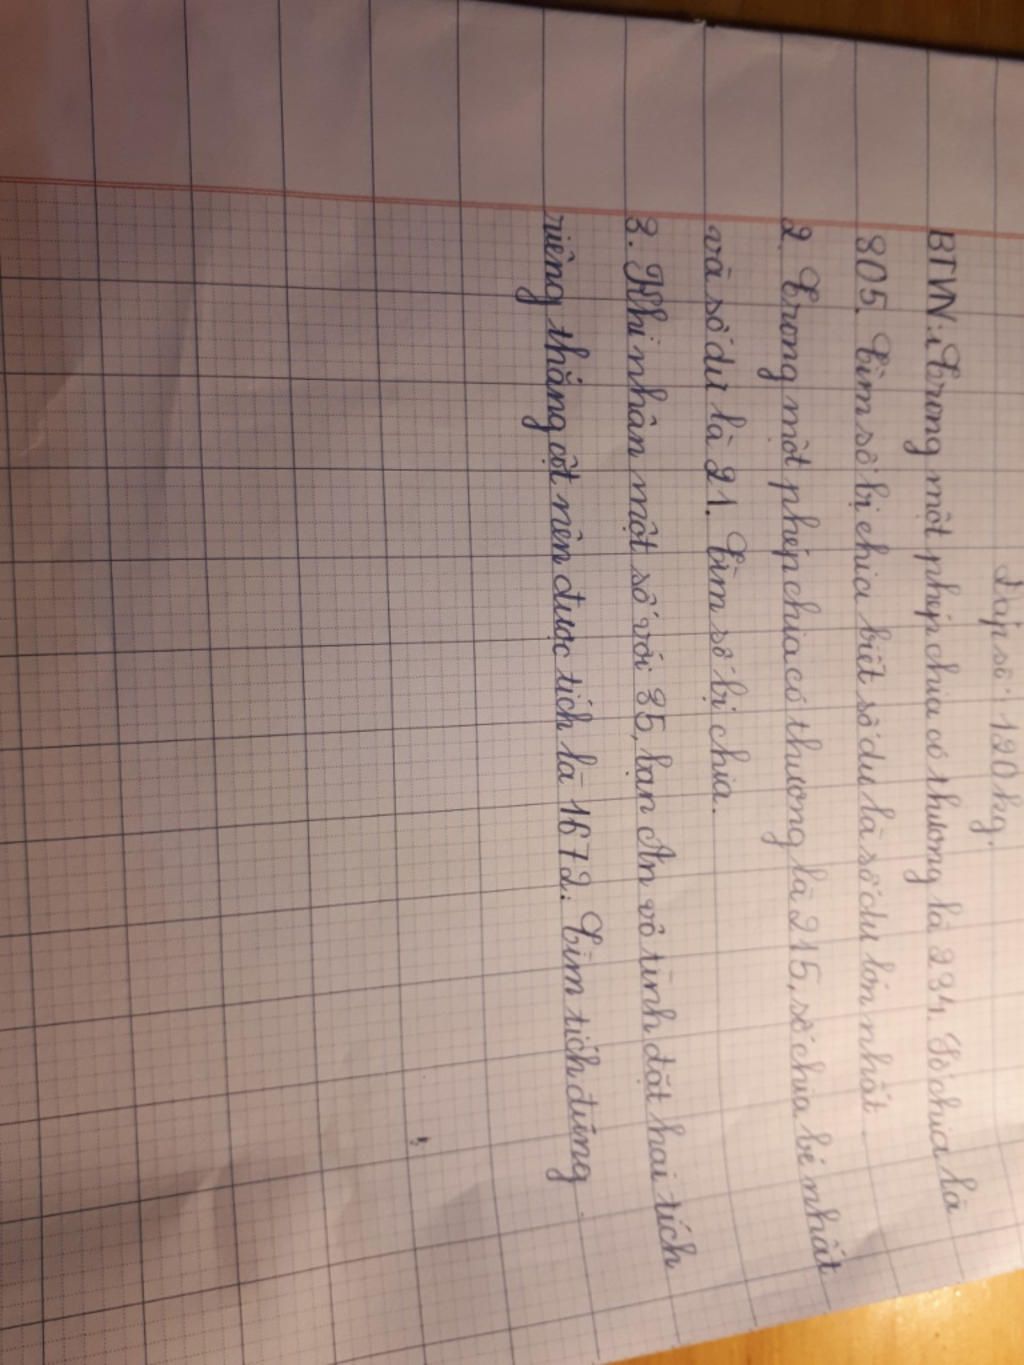 Đáp số: 120kg.
BTVN: 1. Trong một phép chia có thương là 234. Số chia là
805. Tìm số bị chia biết số dư là số dư lớn nhất.
2. Trong một phép chia có thương là 215, số chia bé nhất
và số dư là 21. Tìm số bị chia.
3. Khi nhân một số với 35, bạn An vô tình đặt hai tích
riêng thẳng cột nên được tích là 1672. Tìm tích đúng